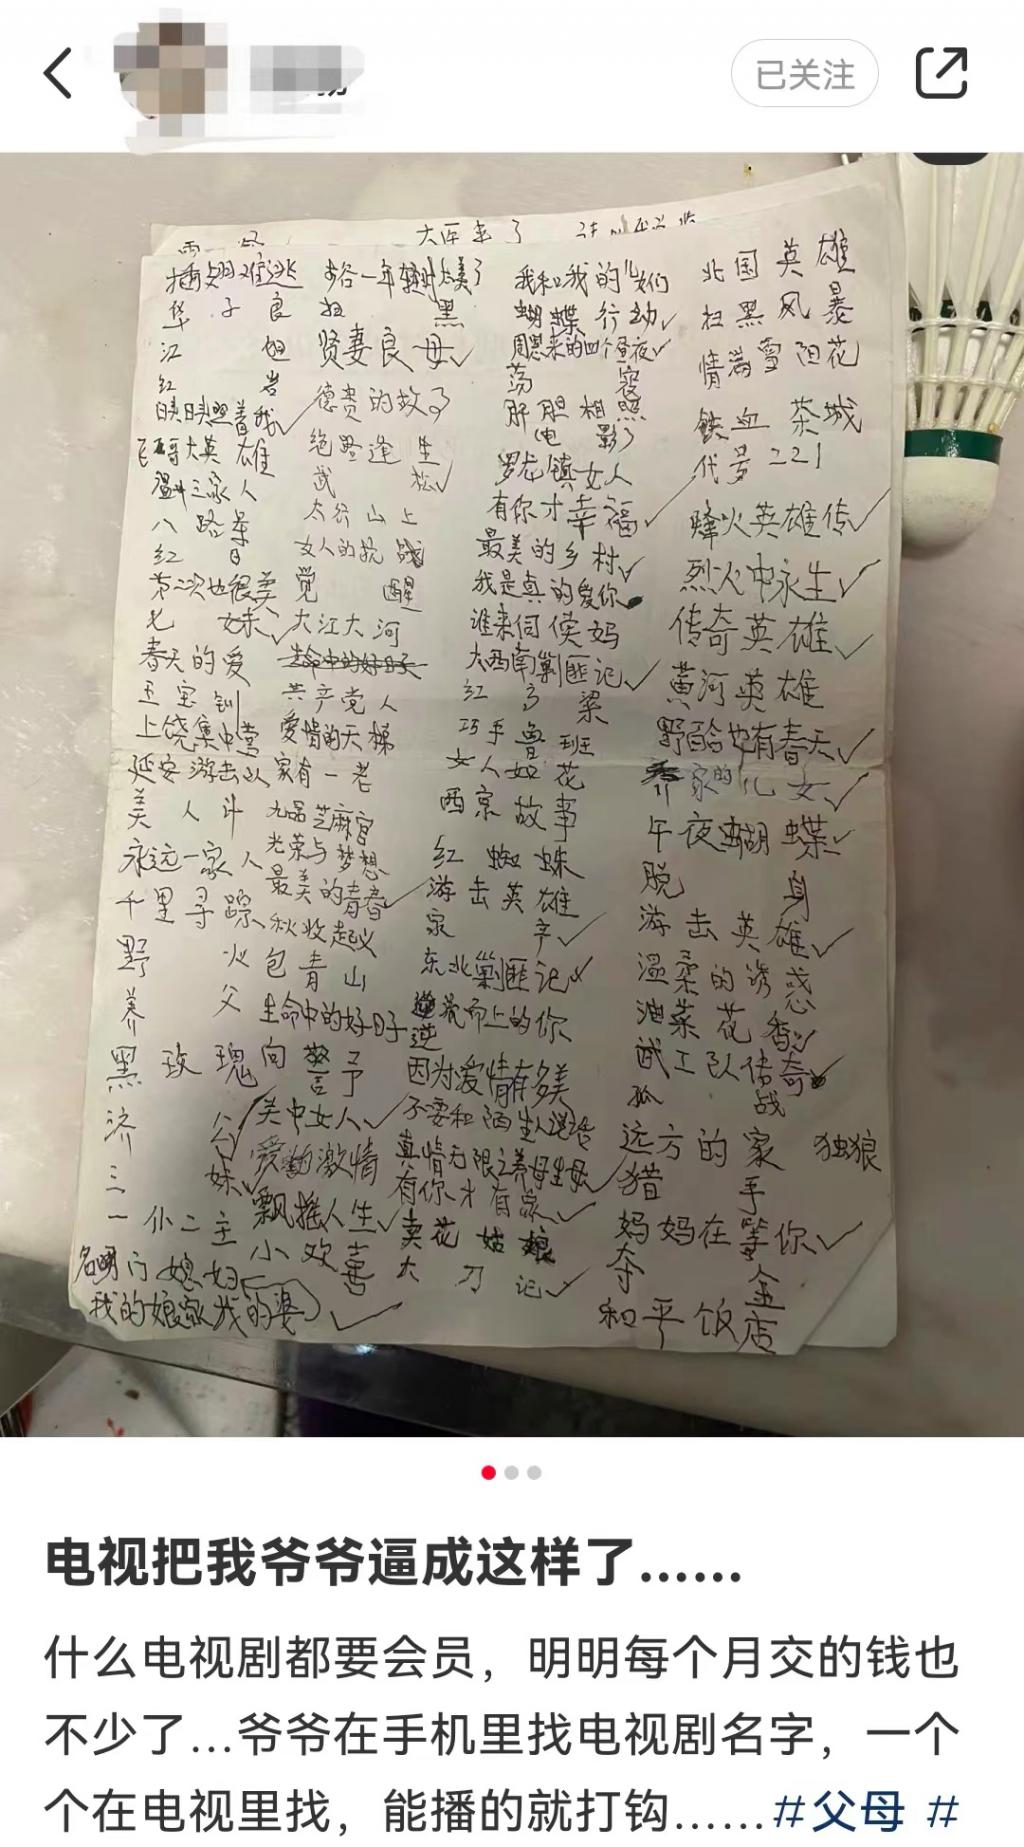 已关注
插翅难逃 步谷一年辣时太美了 我和我的儿女们 北国英雄
华子良 扫黑 蝴蝶行动✓ 扫黑风暴
江姐 贤妻良母✓ 周恩来的四个昼夜✓ 情满雪阳花
红岩 德贵的故事 荡寇 铁血茶城
映日映照着我✓ 绝路逢生 肝胆相照 代号221
飞哥大英雄 武松✓ 电影 烽火英雄传✓
温州三家人 太行山上 罗龙镇女人 烈火中永生✓
八路军 女人的抗战 有你才幸福✓ 传奇英雄✓
红日 觉醒 最美的乡村✓ 黄河英雄
第二次也很美 大江大河 我是真的爱你 野百合也有春天✓
七妹✓ 生命中的好日子 谁来伺候妈 养家的儿女✓
春天的爱 共产党人 大西南剿匪记✓ 午夜蝴蝶✓
王宝钏 爱情的天梯 红高粱 脱身
上饶集中营 家有一老 巧手鲁班 游击英雄✓
延安游击队 九品芝麻官 女人如花 温柔的诱惑
美人斗 光荣与梦想 西京故事 油菜花香✓
永远一家人 最美的青春✓ 红蜘蛛 武工队传奇
千里寻踪 秋收起义 游击英雄 孤战
野火 包青山 家辛✓ 远方的家 独狼
养父 生命中的好日子 东北剿匪记✓ 猎手
黑玫瑰 向警予 逆光而上的你 妈妈在等你✓
济公✓ 关中女人✓ 因为爱情有多美 夺金
三妹✓ 爱的激情 不要和陌生人说话 和平饭店
一仆二主 飘摇人生✓ 真情无限之养母生母✓
名门媳妇 小欢喜 有你才有家✓
我的娘家我的婆✓ 卖花姑娘
大刀记✓
电视把我爷爷逼成这样了......
什么电视剧都要会员，明明每个月交的钱也
不少了...爷爷在手机里找电视剧名字，一个
个在电视里找，能播的就打钩......#父母 #